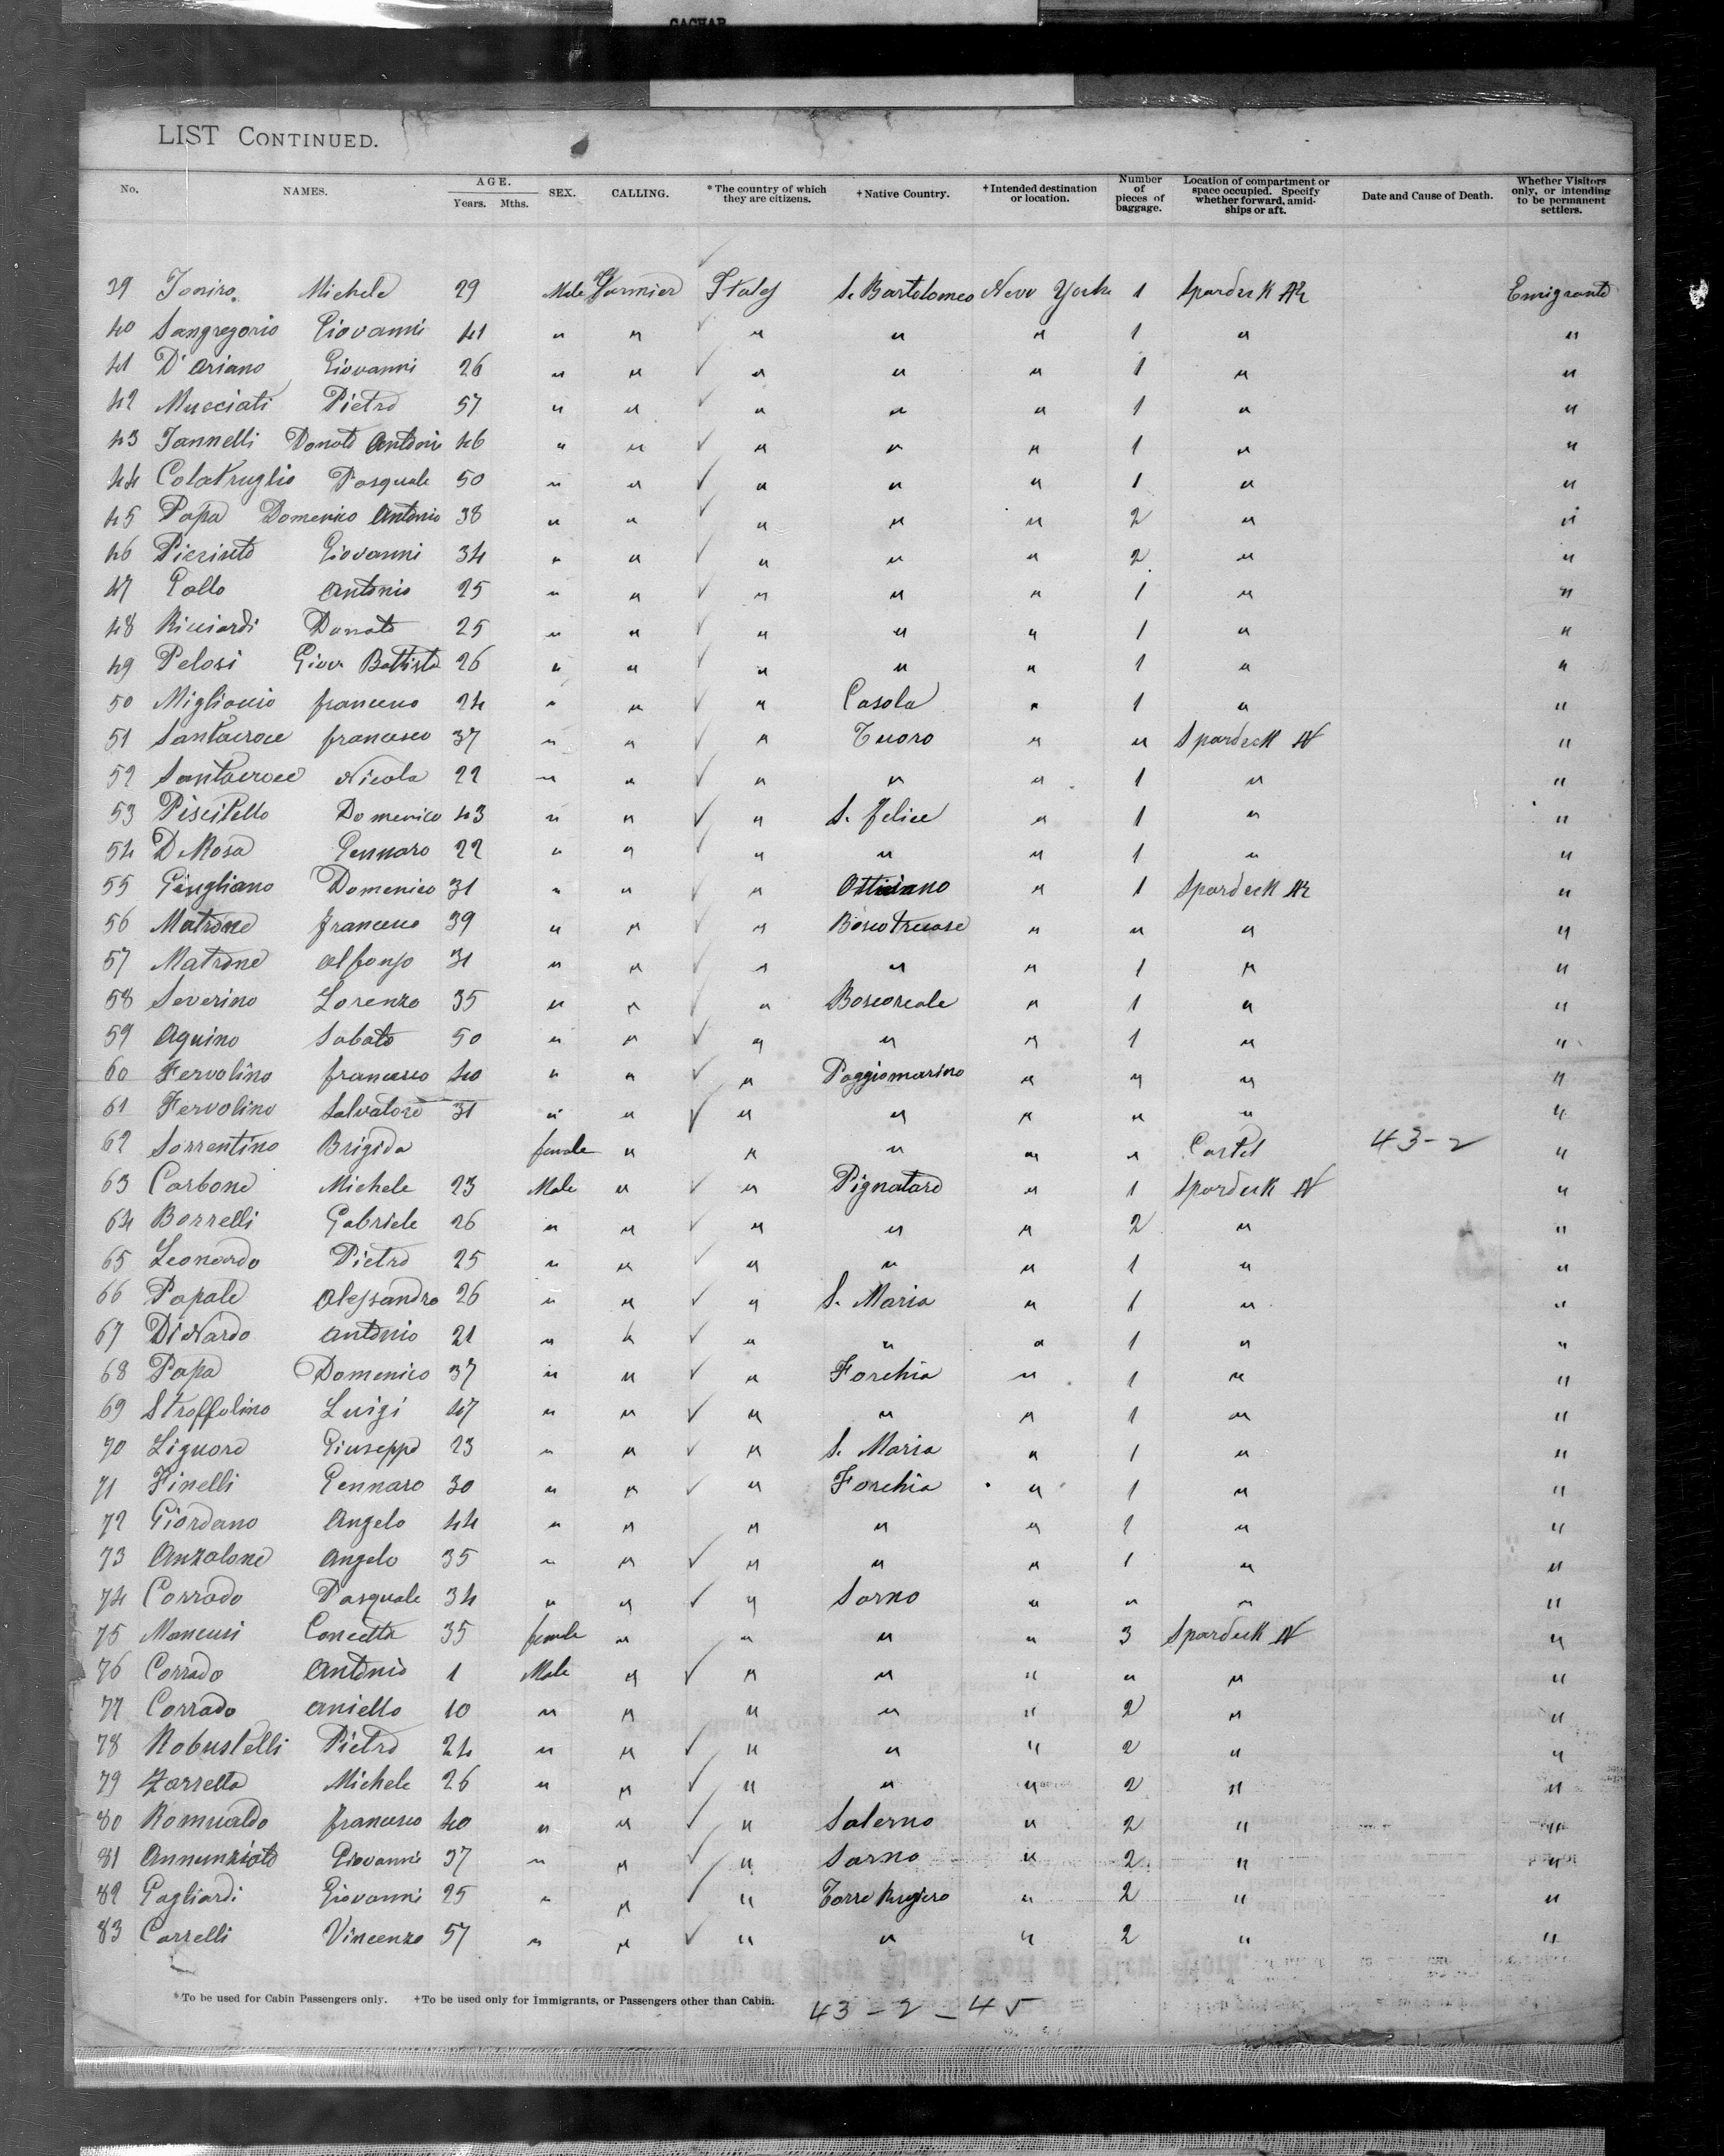 LIST CONTINUED.
No. NAMES. AGE. Years. Mths. SEX. CALLING. *The country of which they are citizens. +Native Country. +Intended destination or location. Number of pieces of baggage. Location of compartment or space occupied. Specify whether forward, amidships or aft. Date and Cause of Death. Whether Visitors only, or intending to be permanent settlers.
39 Michele 29 Male Italy S. Bartolomeo New York 1 Spardeck Emigrante
40 Sangregorio Giovanni 41 " " " " " 1 " "
41 D'Ariano Giovanni 26 " " " " " 1 " "
42 Mucciati Pietro 57 " " " " " 1 " "
43 Iannelli Donato Antonio 46 " " " " " 1 " "
44 Colatruglio Pasquale 50 " " " " " 1 " "
45 Papa Domenico Antonio 38 " " " " " 2 " "
46 Giovanni 34 " " " " " 2 " "
47 Gallo Antonio 25 " " " " " 1 " "
48 Ricciardi Donato 25 " " " " " 1 " "
49 Pelosi Giov. Battista 26 " " " " " 1 " "
50 Migliaccio francesco 24 " " " Casola " 1 " "
51 Santacroce francesco 37 " " " Tuoro " " Spardeck "
52 Santacroce Nicola 22 " " " " " 1 " "
53 Piscitello Domenico 43 " " " S. felice " 1 " "
54 DeRosa Gennaro 22 " " " " " 1 " "
55 Giugliano Domenico 31 " " " Ottaiano " 1 Spardeck "
56 Matrone francesco 39 " " " Boscotrecase " " " "
57 Matrone alfonso 31 " " " " " 1 " "
58 Severino Lorenzo 35 " " " Boscoreale " 1 " "
59 Aquino Sabato 50 " " " " " 1 " "
60 Fervolino francesco 40 " " " Poggiomarino " " " "
61 Fervolino Salvatore 31 " " " " " " " "
62 Sorrentino Brigida female " " " " " 43-2 "
63 Carbone Michele 23 Male " " Pignataro " 1 Spardeck "
64 Borrelli Gabriele 26 " " " " " 2 " "
65 Leonardo Pietro 25 " " " " " 1 " "
66 Papale Alessandro 26 " " " S. Maria " 1 " "
67 DiNardo Antonio 21 " " " " " 1 " "
68 Papa Domenico 37 " " " Forchia " 1 " "
69 Stroffolino Luigi 47 " " " " " 1 " "
70 Liguore Giuseppe 23 " " " S. Maria " 1 " "
71 Finelli Gennaro 30 " " " Forchia " 1 " "
72 Giordano Angelo 44 " " " " " 1 " "
73 Anzalone Angelo 35 " " " " " 1 " "
74 Corrado Pasquale 34 " " " Sarno " " " "
75 Mancusi Concetta 35 female " " " " 3 Spardeck "
76 Corrado Antonio 1 Male " " " " " " "
77 Corrado aniello 10 " " " " " 2 " "
78 Robustelli Pietro 24 " " " " " 2 " "
79 Zarrella Michele 26 " " " " " 2 " "
80 Romualdo francesco 40 " " " Salerno " 2 " "
81 Annunziato Giovanni 37 " " " Sarno " 2 " "
82 Gagliardi Giovanni 25 " " " Torre Rugiero " 2 " "
83 Carselli Vincenzo 57 " " " " " 2 " "
*To be used for Cabin Passengers only. +To be used only for Immigrants, or Passengers other than Cabin.
43-2-45